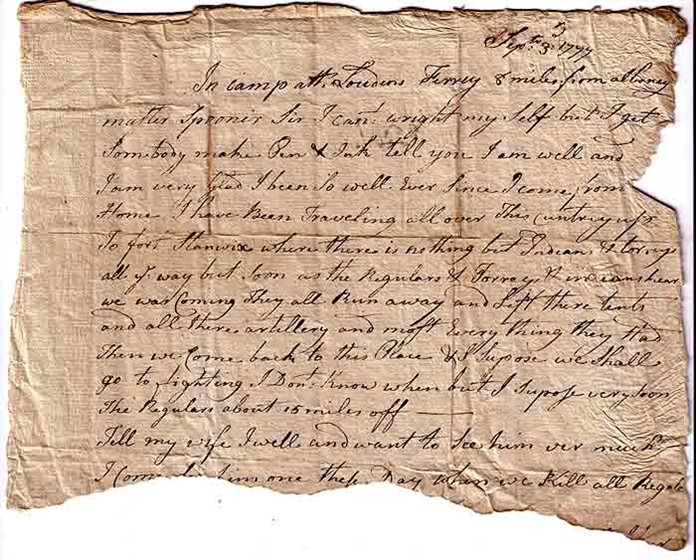 Septr 3d 1777
In camp att Loudens Ferrey 8 miles from albaney
matter Spooner Sir I cant wright my Self but I get
Sombody make Pen & Ink tell you I am well and
I am very Glad I been So well Ever Since I come from
Home I have Been Traveling all over This cuntrey upp
To fort Stanwix where there is nothing but Indians & torreys
all ye way but Soon as the Regulars & Torreys & indians hear
we war Coming They all Run away and Left there tents
and all there artillery and most Every thing they Had
Then we Come back to this Place & I Supose we Shall
go to fighting I Dont Know when but I supose very soon
The Regulars about 15 miles off
Tell my wife I well and want to See him ver much
I Come him one thes Day when we Kill all Regular